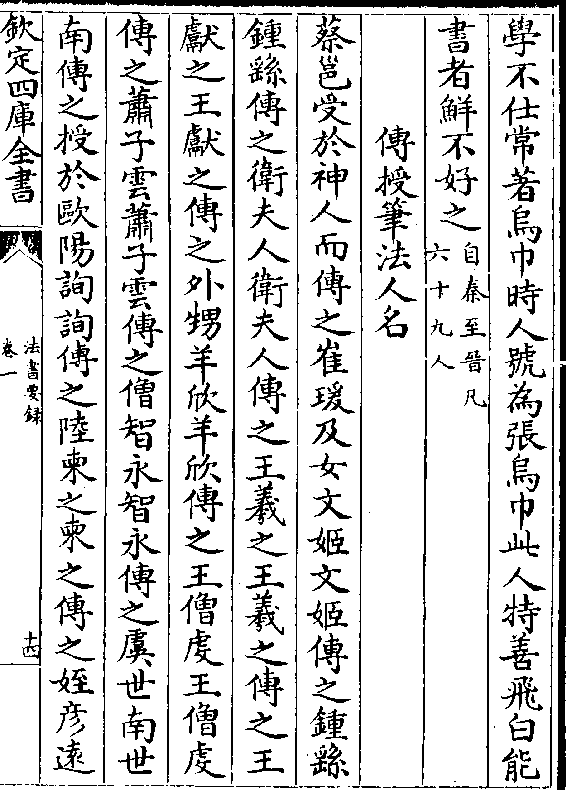 學不仕常著烏巾時人號為張烏巾此人特善飛白能
書者鮮不好之自秦至晉凡
六十九人
傳授筆法人名
蔡邕受於神人而傳之崔瑗及女文姬文姬傳之鍾繇
鍾繇傳之衛夫人衛夫人傳之王羲之王羲之傳之王
獻之王獻之傳之外甥羊欣羊欣傳之王僧虔王僧虔
傳之蕭子雲蕭子雲傳之僧智永智永傳之虞世南世
南傳之授於歐陽詢詢傳之陸柬之柬之傳之姪彥遠
欽定四庫全書
法書要録
卷一
十四